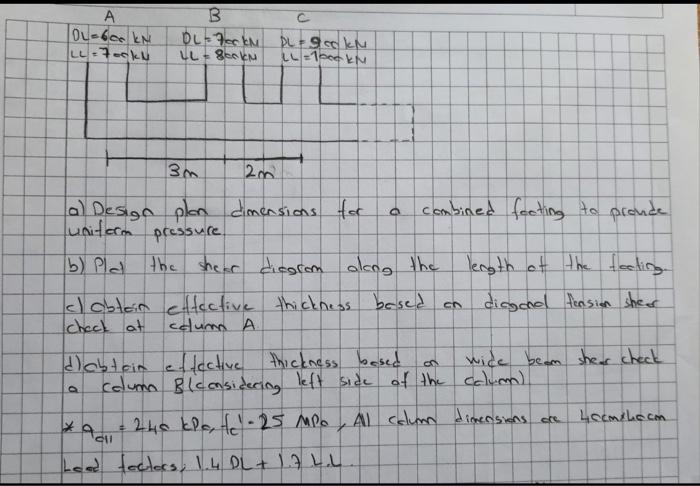 A B C
DL=600 kN DL=700 kN DL=900 kN
LL=700 kN LL=800 kN LL=1000 kN
3m 2m
a) Design plan dimensions for a combined footing to provide
uniform pressure
b) Plot the shear diagram along the length of the footing
c) obtain effective thickness based on diagonal tension shear
check at column A
d) obtain effective thickness based on wide beam shear check
a column B (considering left side of the column)
* qall = 240 kPa, fc' = 25 MPa, All column dimensions are 40cmx40cm
Load factors, 1.4 DL + 1.7 LL.